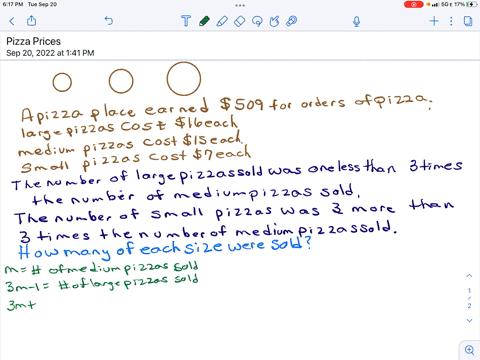 6:17 PM Tue Sep 20
5G 17%
Pizza Prices
Sep 20, 2022 at 1:41 PM
A pizza place earned $509 for orders of pizza.
large pizzas cost $16 each
medium pizzas cost $15 each
Small pizzas cost $7 each
The number of large pizzas sold was one less than 3 times
the number of medium pizzas sold.
The number of small pizzas was 3 more than
3 times the number of medium pizzas sold.
How many of each size were sold?
m = # of medium pizzas sold
3m-1 = # of large pizzas sold
3m+
1
2